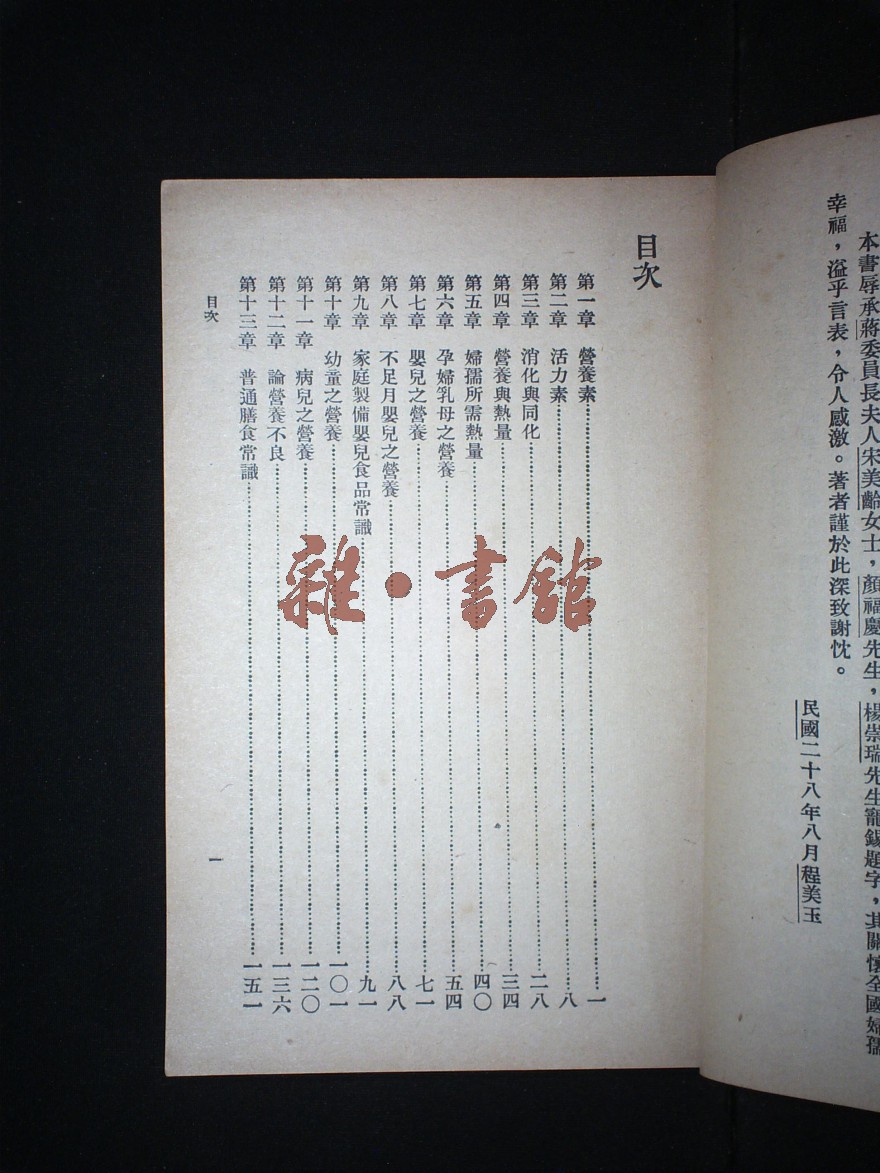 本書辱承蔣委員長夫人宋美齡女士，顏福慶先生，楊崇瑞先生寵錫題字，其關懷全國婦孺
幸福，溢乎言表，令人感激。著者謹於此深致謝忱。
民國二十八年八月程美玉
目次
第一章 營養素 一
第二章 活力素 八
第三章 消化與同化 二八
第四章 營養與熱量 三四
第五章 婦孺所需熱量 四〇
第六章 孕婦乳母之營養 五四
第七章 嬰兒之營養 七一
第八章 不足月嬰兒之營養 八八
第九章 家庭製備嬰兒食品常識 九一
第十章 幼童之營養 一〇一
第十一章 病兒之營養 一二〇
第十二章 論營養不良 一三六
第十三章 普通膳食常識 一五一
目次 一
雜·書館